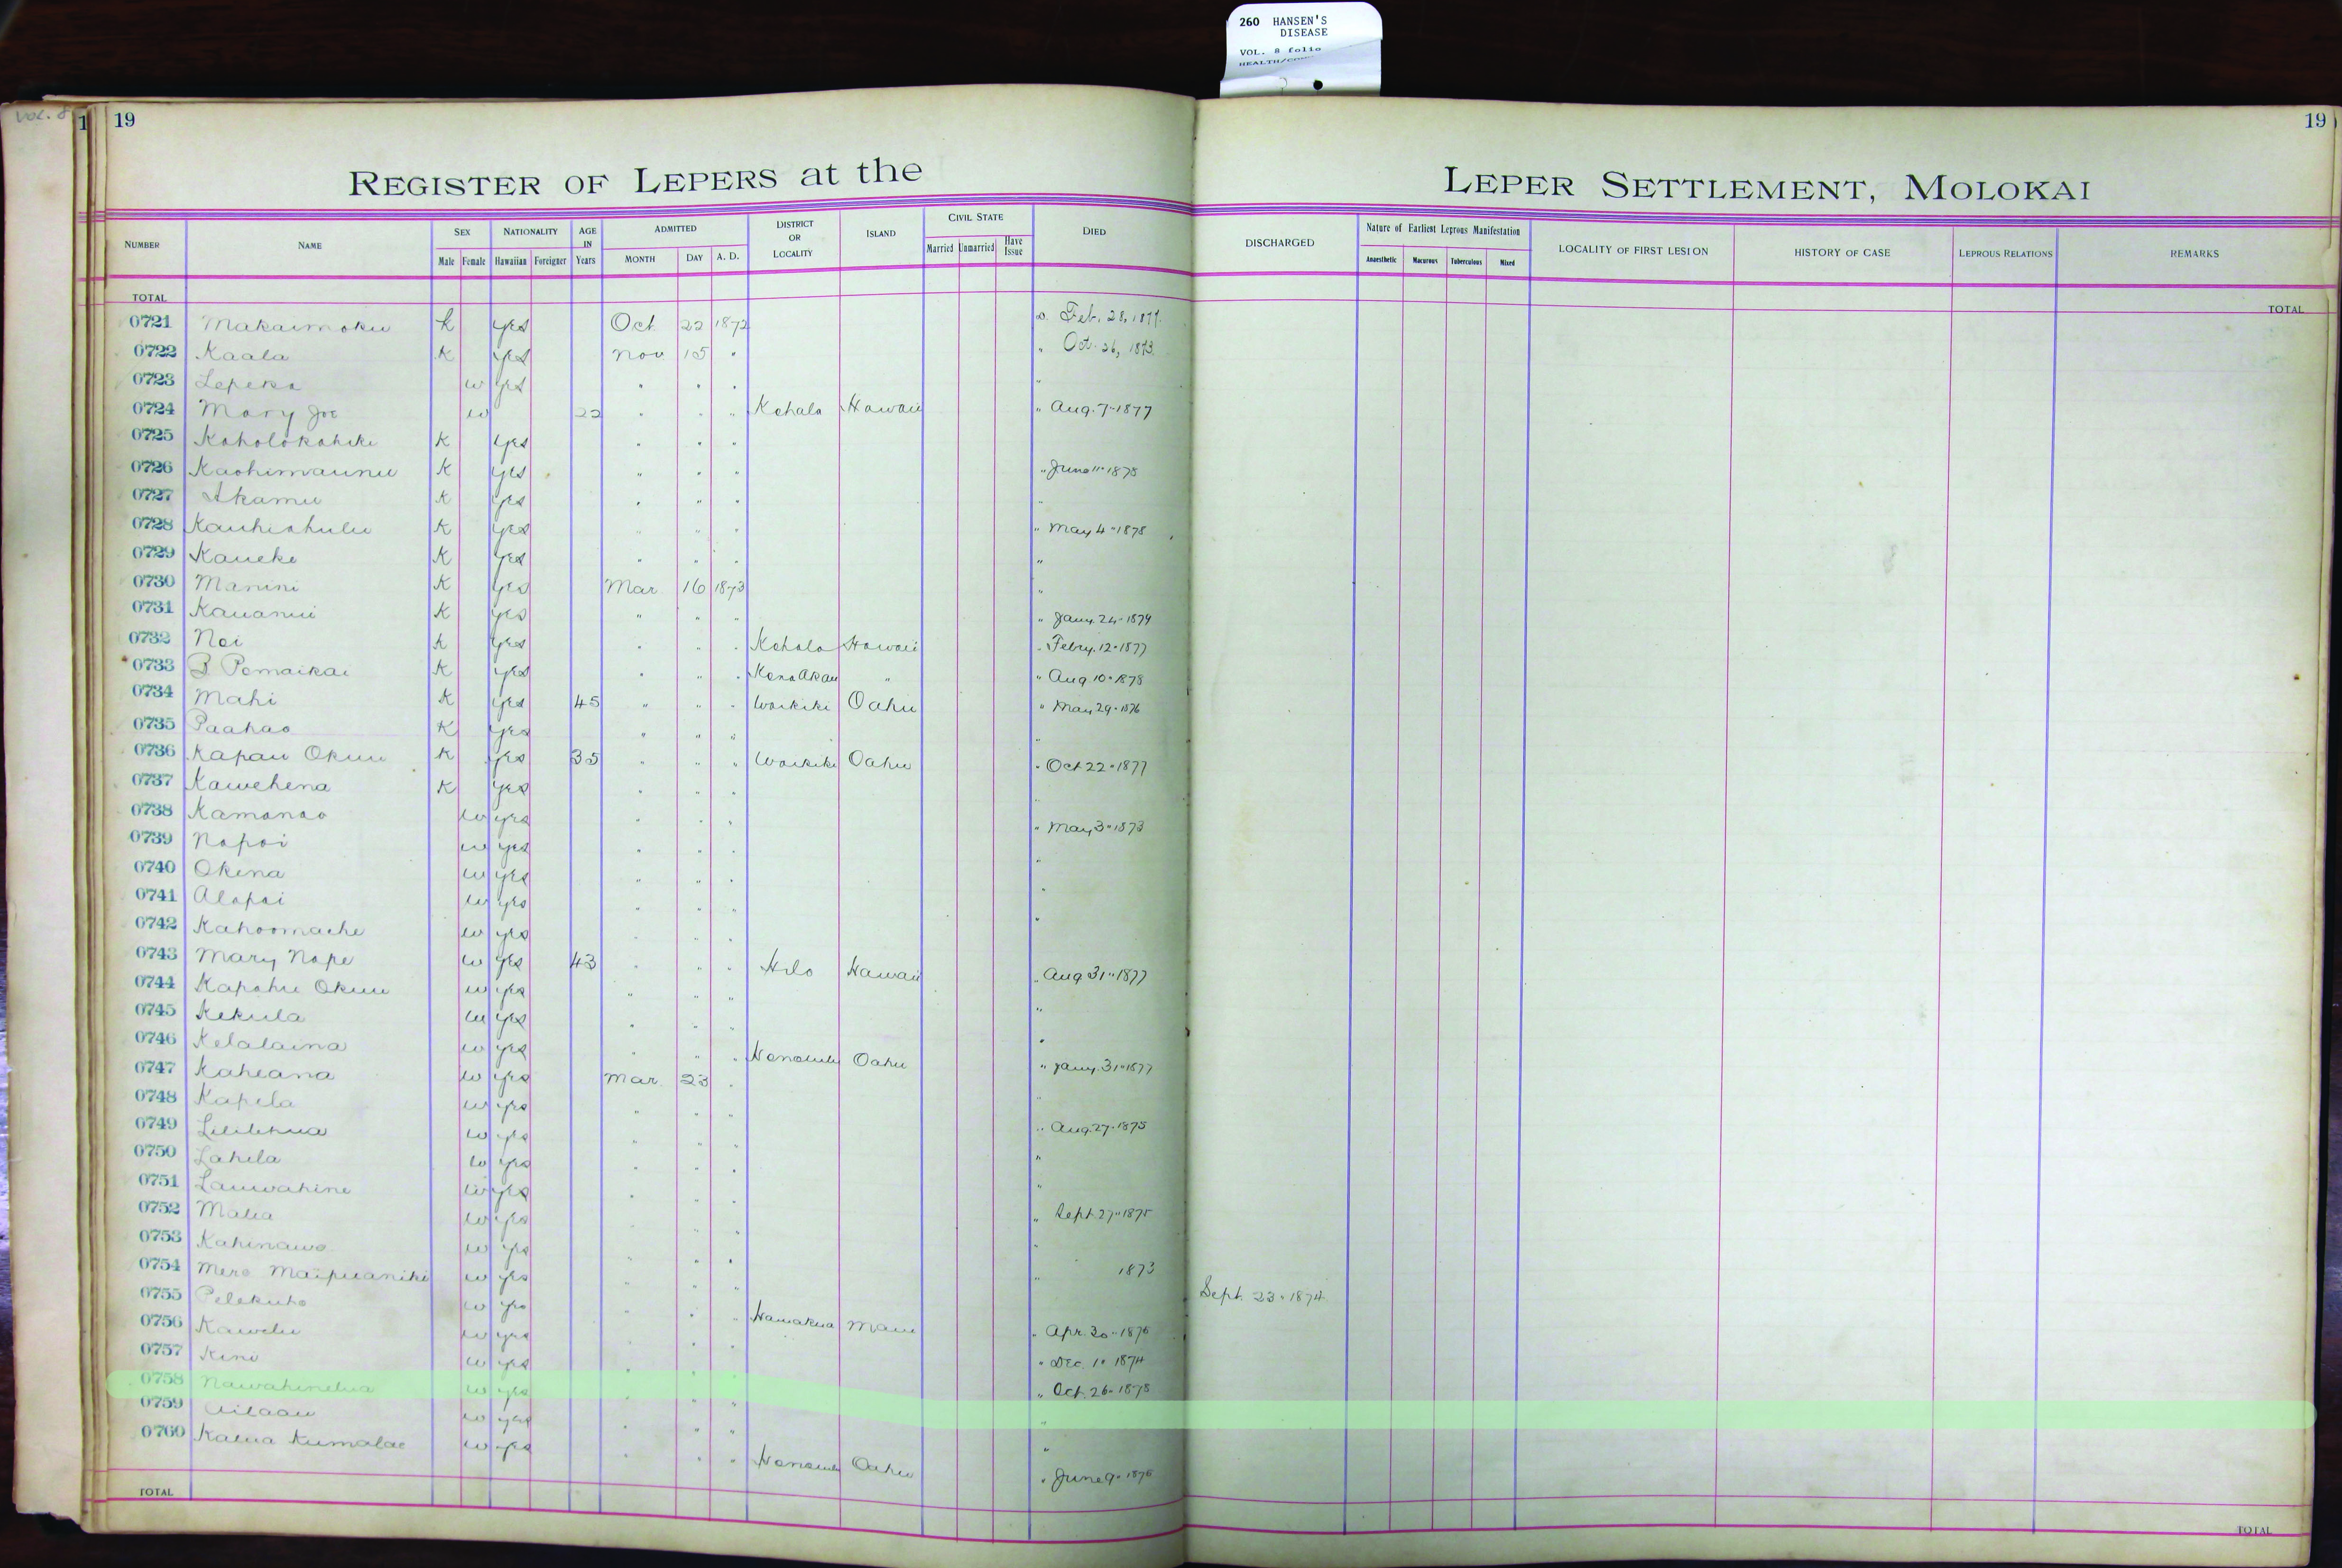 260 HANSEN'S
DISEASE
VOL. 8 folio
Vol. 8
1 19 19
REGISTER OF LEPERS at the LEPER SETTLEMENT, MOLOKAI
NUMBER NAME SEX Male Female NATIONALITY Hawaiian Foreigner AGE IN Years ADMITTED MONTH DAY A. D. DISTRICT OR LOCALITY ISLAND CIVIL STATE Married Unmarried Have Issue DIED DISCHARGED Nature of Earliest Leprous Manifestation Anaesthetic Macurous Tuberculous Mixed LOCALITY OF FIRST LESION HISTORY OF CASE LEPROUS RELATIONS REMARKS
TOTAL TOTAL
0721 Makaimoku k yes Oct. 22 1872 Feb. 28, 1877.
0722 Kaala K yes Nov 15 " " Oct. 26, 1873.
0723 Lepeka w yes " " " "
0724 Mary Joe w 22 " " " Kohala Hawaii " Aug. 7-1877
0725 Koholokahiki K yes " " "
0726 Kaohimaunu K yes " " " " June 11-1878
0727 Akamu K yes " " " "
0728 Kauhiahulu K yes " " " " May 4-1878
0729 Kaueke K yes " " " "
0730 Manini K yes Mar 16 1873 "
0731 Kauanui K yes " " " " Jany. 24-1879
0732 Noi K yes " " " Kohala Hawaii " Febry. 12-1877
0733 B Pomaikai K yes " " " Kona Akau " " Aug 10-1878
0734 Mahi K yes 45 " " " Waikiki Oahu " May 29-1876
0735 Paahao K yes " " " "
0736 Kapau Okuu K yes 35 " " " Waikiki Oahu " Oct 22-1877
0737 Kawehena K yes " " " "
0738 Kamanao w yes " " " " May 3-1873
0739 Napoi w yes " " " "
0740 Okina w yes " " " "
0741 Alapai w yes " " " "
0742 Kahoomache w yes " " "
0743 Mary Nape w yes 43 " " " Hilo Hawaii " Aug 31-1877
0744 Kapahu Okuu w yes " " " "
0745 Kekula w yes " " " "
0746 Kelalaina w yes " " " Honolulu Oahu " Jany. 31-1877
0747 Kaheana w yes Mar. 23 " "
0748 Kapela w yes " " " " Aug. 27-1875
0749 Lililehua w yes " " " "
0750 Lahela w yes " " " "
0751 Lauwahine w yes " " " " Sept. 27-1875
0752 Malia w yes " " " "
0753 Kahinawe w yes " " " " 1873
0754 Mere Maipuaniki w yes " " " Sept. 23-1874
0755 Pelekuho w yes " " " Hamakua Maui " Apr. 30-1876
0756 Kawelu w yes " " " " Dec. 1-1874
0757 Kini w yes " " " " Oct. 26-1878
0758 Nawahinelua w yes " " " "
0759 Ailaau w yes " " " "
0760 Kalua Kumalae w yes " " " Honolulu Oahu " June 9-1876
TOTAL TOTAL